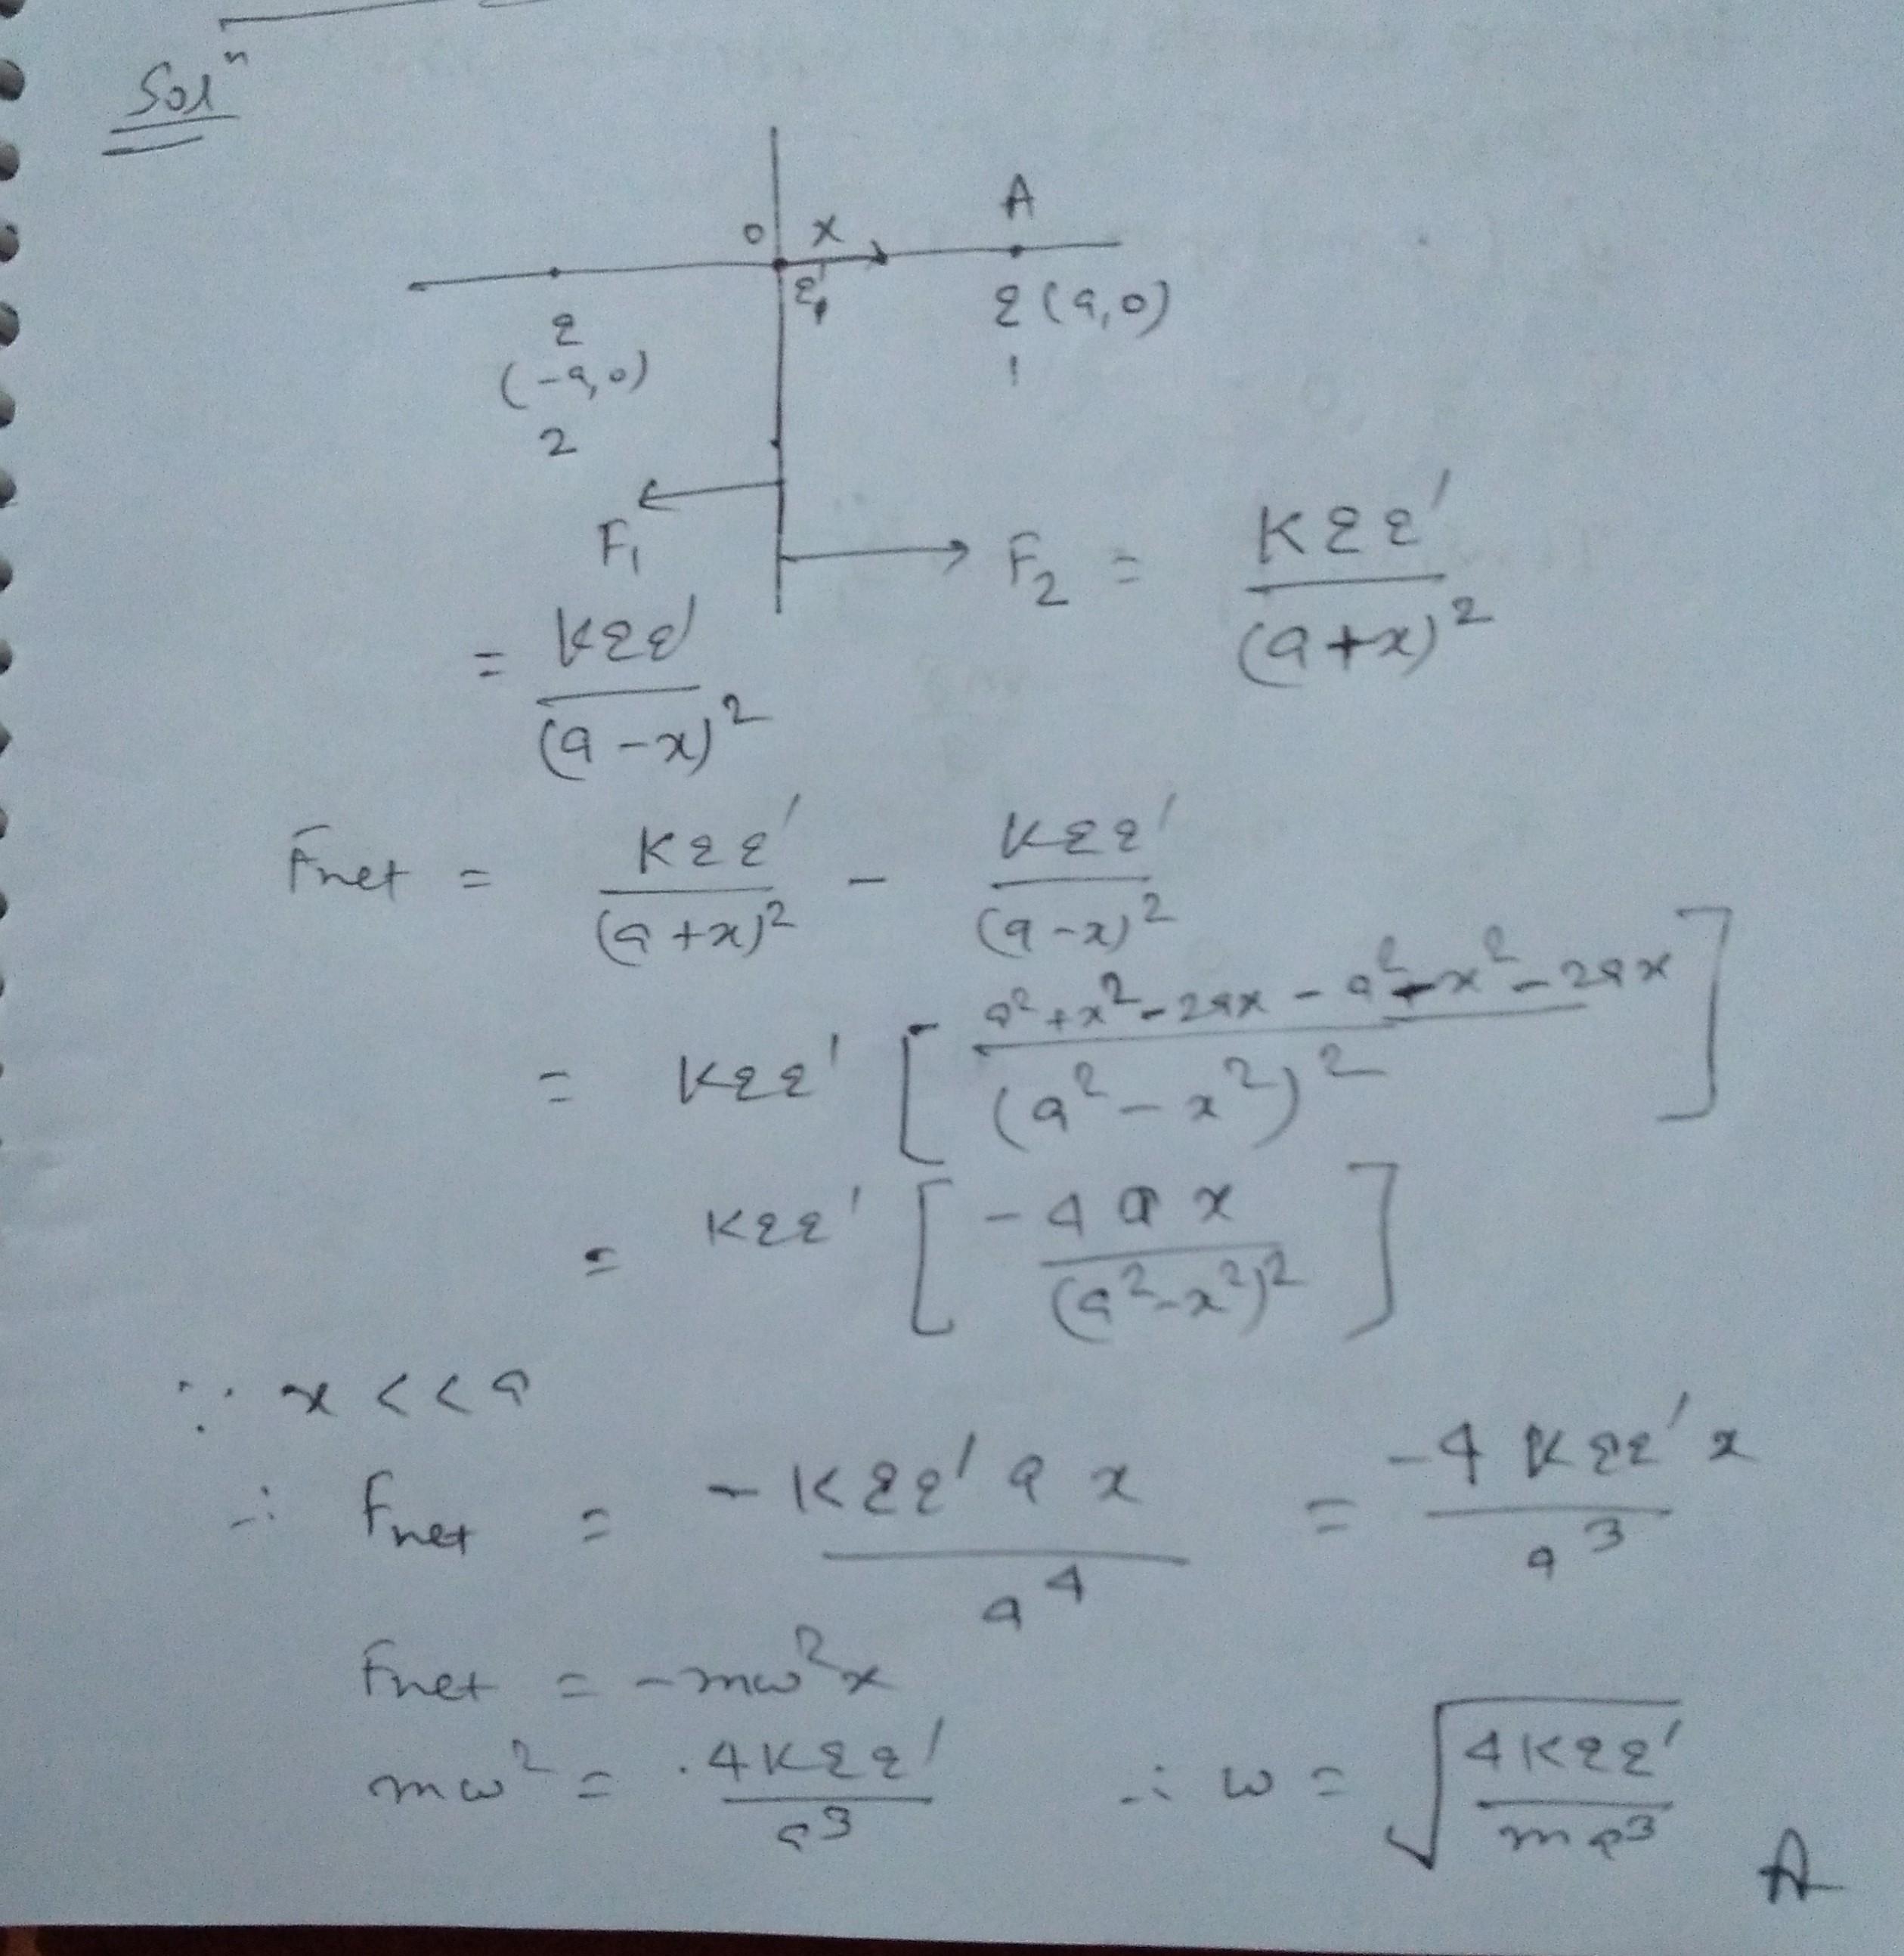 Solⁿ
A
O x
q' q (a,0)
q
(-a,0) 1
2
F₁ F₂ = Kqq' / (a+x)²
= Kqq' / (a-x)²
Fnet = Kqq' / (a+x)² - Kqq' / (a-x)²
= Kqq' [ a²+x²-2ax - a²-x²-2ax / (a²-x²)² ]
= Kqq' [ -4ax / (a²-x²)² ]
∵ x << a
∴ Fnet = -Kqq'ax / a⁴ = -4Kqq'x / a³
Fnet = -mω²x
mω² = 4Kqq' / a³ ∴ ω = √(4Kqq' / ma³)
A